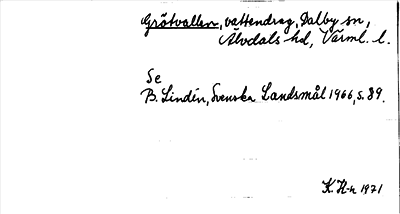 Grötvallen, vattendrag, Dalby sn,
Älvdals hd, Värml. l.
Se
B. Lindén, Svenska Landsmål 1966, s. 89.
K. H-n 1971